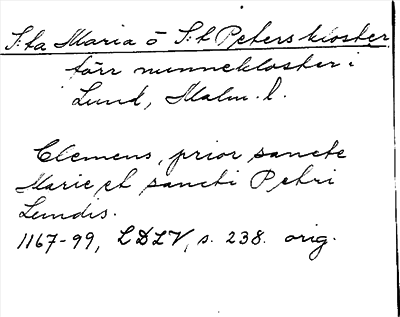 S:ta Maria o S:t Peters kloster,
förr nunnekloster i
Lund, Malm. l.
Clemens, prior sancte
Marie et sancti Petri
Lundis.
1167-99, LDLV, s. 238. orig.